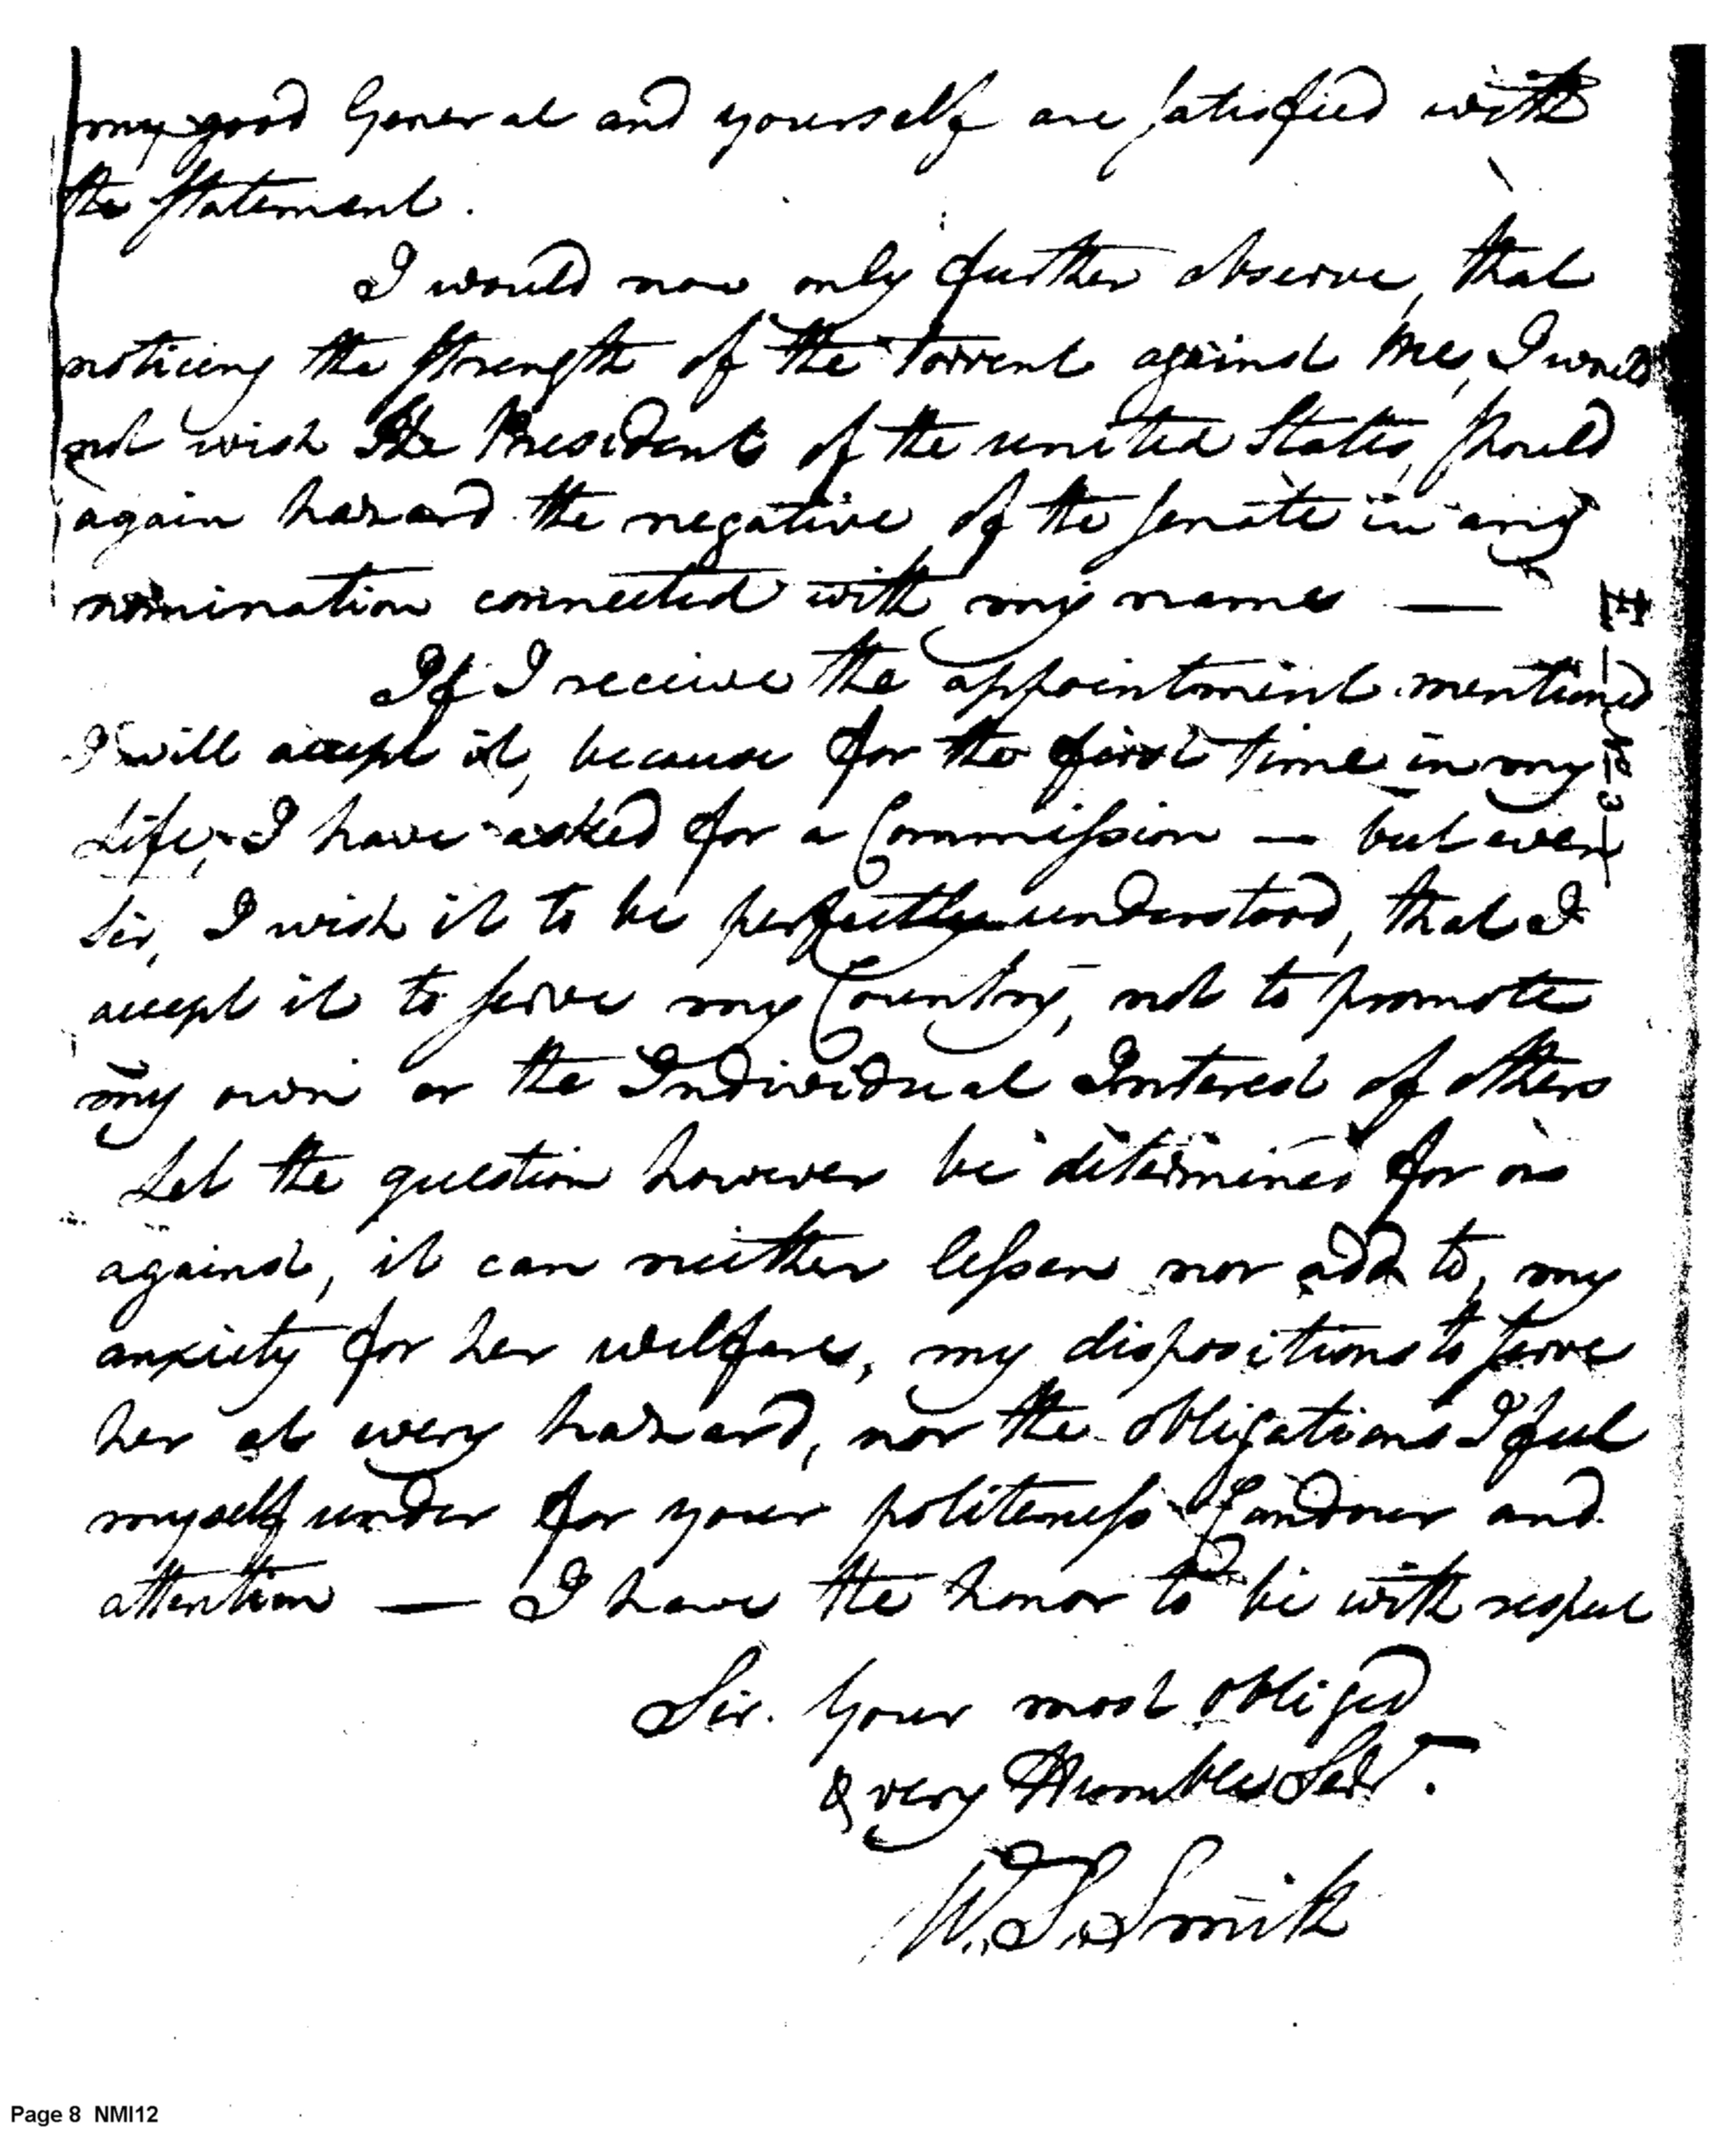 my good General and yourself are satisfied with
the statement.
I would now only further observe, that
noticing the strength of the torrent against me, I would
not wish The President of the united States, should
again hazard the negative of the senate in any
nomination connected with my name —
If I receive the appointment mentioned
I will accept it, because for the first time in my
Life, I have asked for a Commission — but even
Sir, I wish it to be perfectly understood, that I
accept it to serve my Country, not to promote
my own or the Individual Interest of others
Let the question however be determined for or
against, it can neither lessen nor add to, my
anxiety for her welfare, my dispositions to serve
her at every hazard, nor the obligations I feel
myself under for your politeness Candour and
attention — I have the honor to be with respect
Sir. Your most obliged
& very Humble Servt.
W. S. Smith
Page 8 NMI12